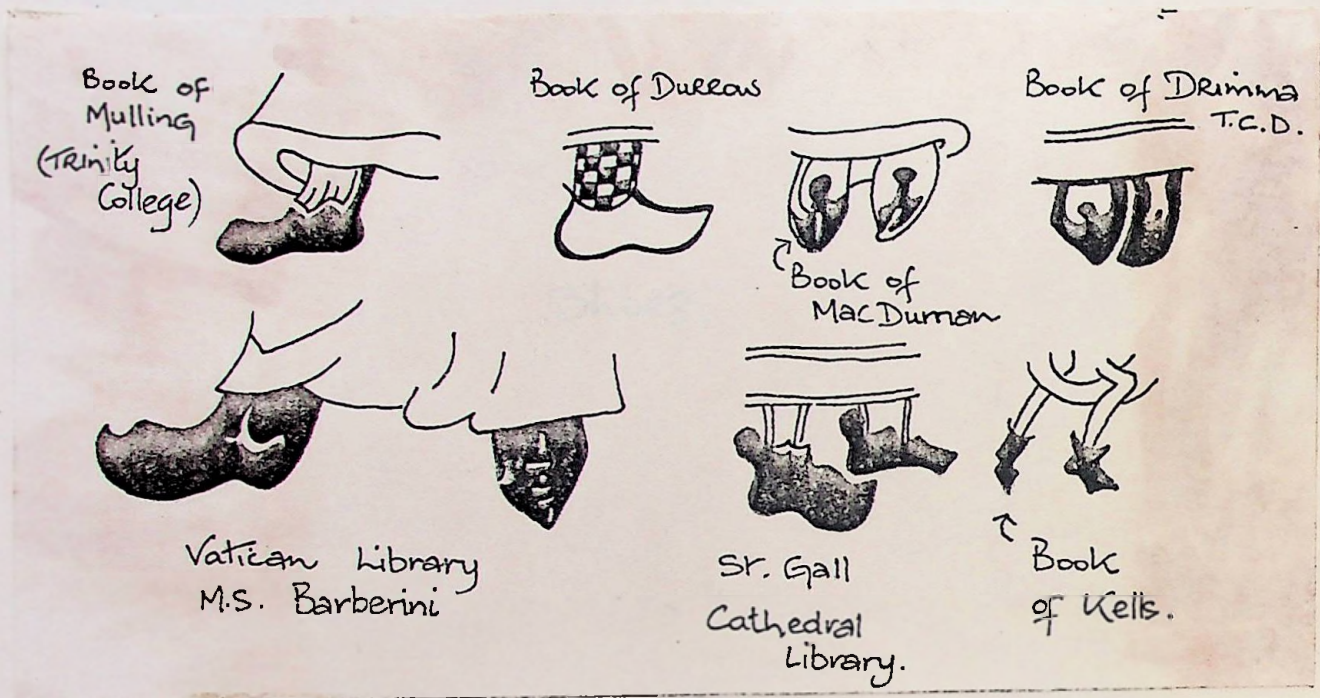 Book of
Mulling
(Trinity
College)
Book of Durrow
Book of Drimma
T.C.D.
Book of
MacDurnan
Vatican Library
M.S. Barberini
St. Gall
Cathedral
Library.
Book
of Kells.